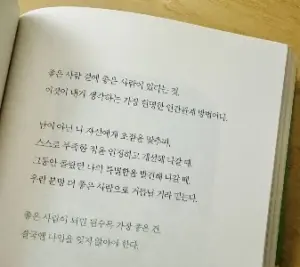 좋은 사람 곁에 좋은 사람이 있다는 것,
이것이 내가 생각하는 가장 현명한 인간관계 방법이니.
남이 아닌 나 자신에게 초점을 맞추며,
스스로 부족한 점을 인정하고 개선해 나갈 때,
그동안 몰랐던 나의 특별함을 발견해 나갈 때,
우린 분명 더 좋은 사람으로 거듭날 거라 믿는다.
좋은 사람이 되면 될수록 가장 좋은 건,
결국엔 나임을 잊지 않아야 한다.